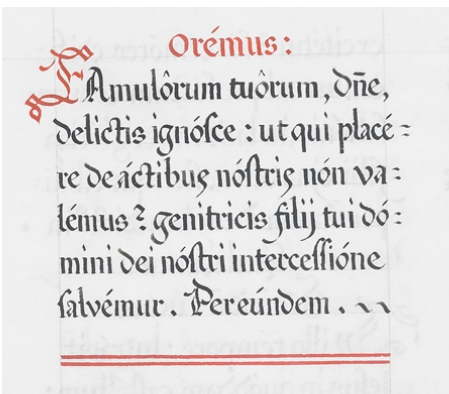 Orémus:
FAmulôrum tuôrum, dñe,
delictis ignósce : ut qui placé=
re de áctibus nóstris nón va=
lémus? genitricis filij tui dó=
mini dei nóstri intercessióne
salvémur. Per eúndem.